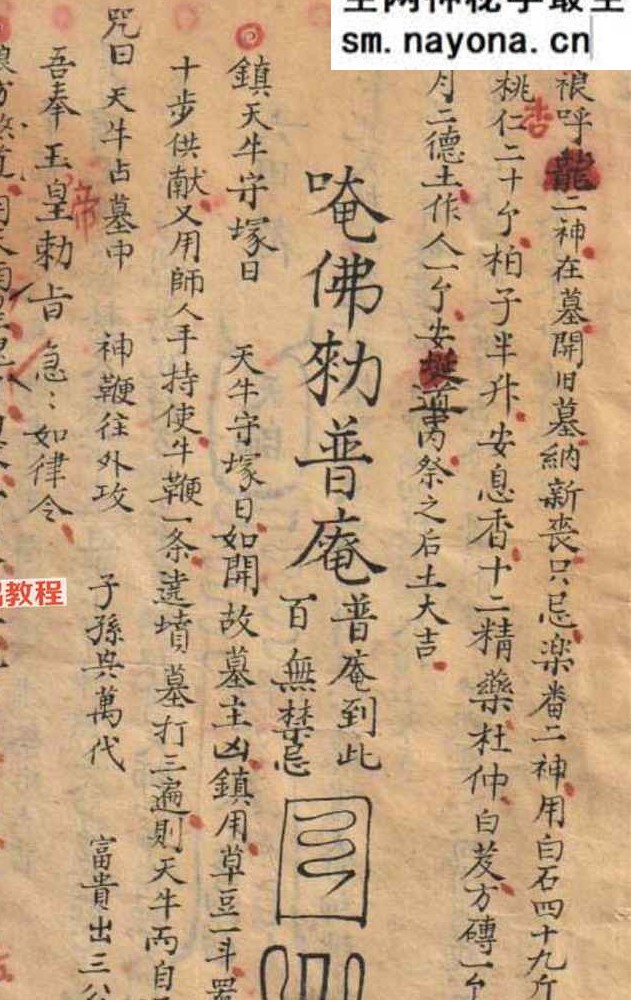 sm.nayona.cn
教程
狼呼龍二神在墓開旧墓納新丧只忌楽番二神用白石四十九斤
桃仁二十个柏子半升安息香十二精藥杜仲白芨方磚一个
杏
月二德土作人一个安道内祭之后土大吉
唵佛勑普庵
普庵到此
百無禁忌
鎮天牛守塚日 天牛守塚日如開故墓主凶鎮用草豆一斗
十步供献又用師人手持使牛鞭一条遶墳墓打三遍則天牛两自
咒曰 天牛占墓中 神鞭往外攻 子孫興萬代 富貴出三公
帝
吾奉玉皇勅旨急〻如律令